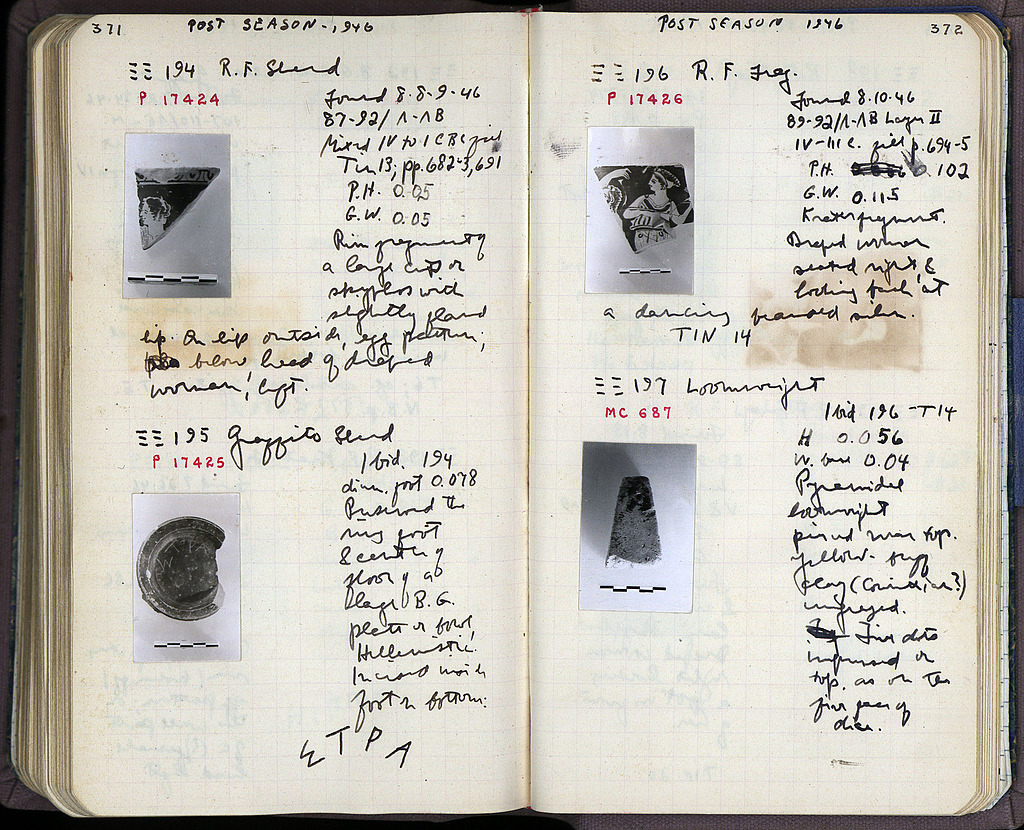 371 POST SEASON - 1946
ΞΞ 194 R.F. Sherd
P 17424
Found 8.8-9-46
87-92/Λ-ΛΒ
Mixed IV to I C BC fill
Tin 13; pp. 682-3, 691
P.H. 0.05
G.W. 0.05
Rim fragment of
a large cup or
skyphos with
slightly flared
lip. On lip outside, egg pattern;
below head of draped
woman, left.
ΞΞ 195 Graffito Sherd
P 17425
Ibid. 194
diam. foot 0.078
Preserved the
ring foot
& center of
floor of a
large B.G.
plate or bowl,
Hellenistic.
Incised inside
foot on bottom:
Σ Τ Ρ Α
POST SEASON 1946 372
ΞΞ 196 R.F. Frag.
P 17426
Found 8.10.46
89-92/Λ-ΛΒ Layer II
IV-III C. fill p. 694-5
P.H. 0.102
G.W. 0.115
Krater fragment.
Draped woman
seated right, &
looking back at
a dancing bearded silen.
TIN 14
ΞΞ 197 Loomweight
MC 687
Ibid 196 - T14
H 0.056
W. base 0.04
Pyramidal
loomweight
pierced near top.
Yellow-buff
clay (Corinthian?)
unglazed.
Five dots
impressed on
top, as on the
five face of
dice.